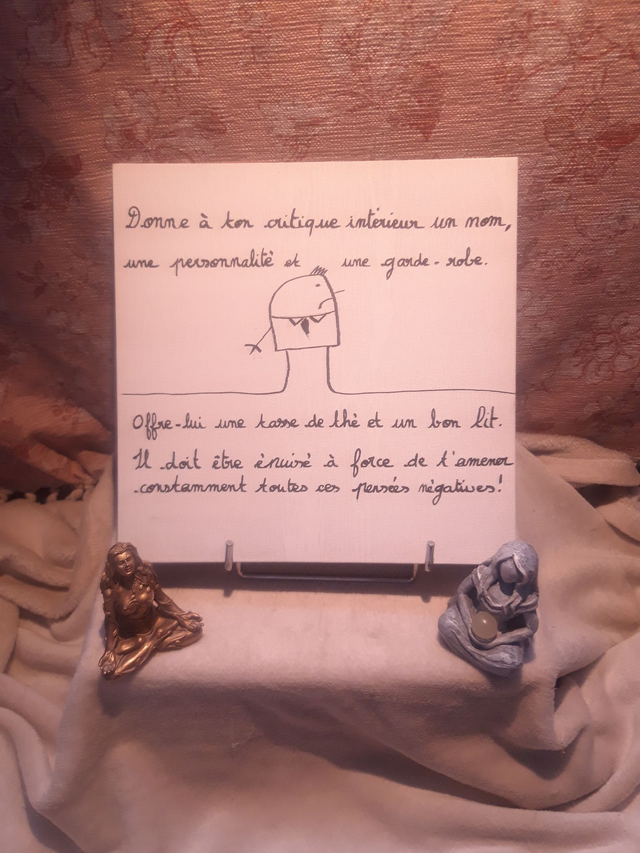 Donne à ton critique intérieur un nom,
une personnalité et une garde-robe.
Offre-lui une tasse de thé et un bon lit.
Il doit être épuisé à force de t'amener
constamment toutes ces pensées négatives!